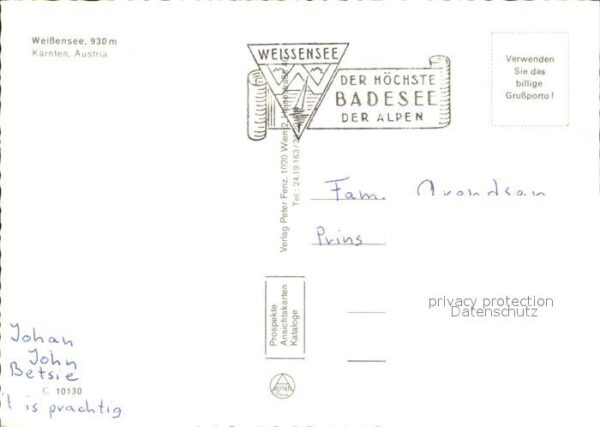 Weißensee, 930 m
Kärnten, Austria
WEISSENSEE
DER HÖCHSTE
BADESEE
DER ALPEN
Verwenden
Sie das
billige
Grußporto!
Verlag Peter Fenz, 1020 Wien 2,
Tel.: 24 19 163/
Fam.
Prins
Prospekte
Ansichtskarten
Kataloge
privacy protection
Datenschutz
Johan
John
Betsie
C 10130
't is prachtig